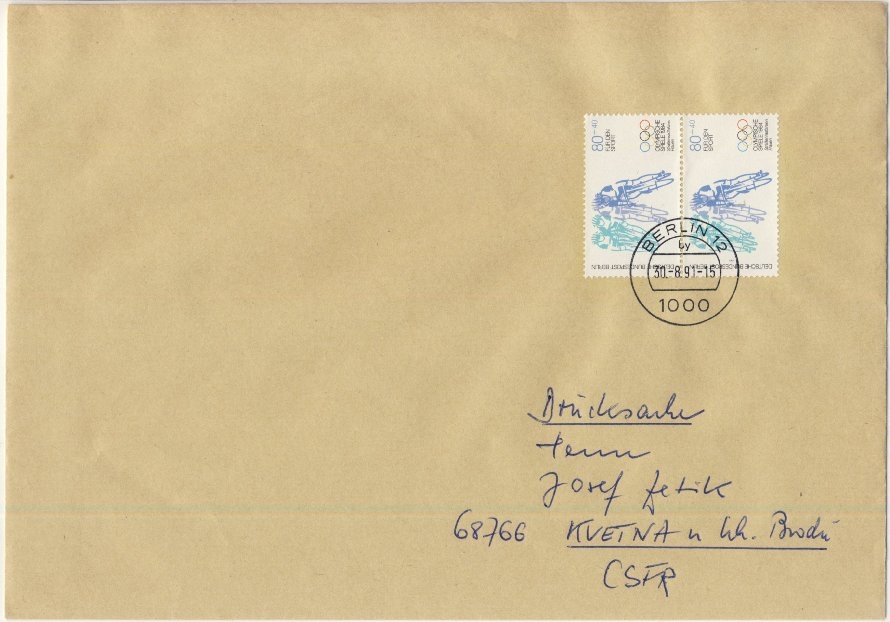 80+40
FÜR DEN
SPORT
OLYMPISCHE
SPIELE 1984
DEUTSCHE BUNDESPOST BERLIN
80+40
FÜR DEN
SPORT
OLYMPISCHE
SPIELE 1984
DEUTSCHE BUNDESPOST BERLIN
BERLIN 12
by
30.-8.91-15
1000
Drucksache
Herrn
Josef
68766 KVETNA u Uh. Brodu
CSFR